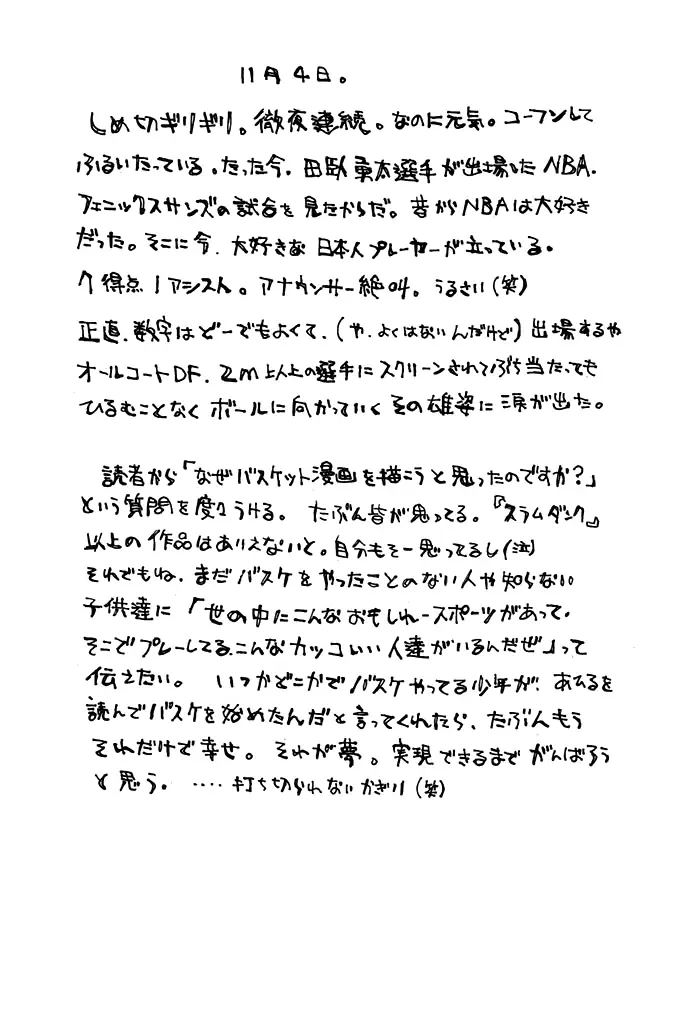 11月4日。
しめ切ギリギリ。徹夜連続。なのに元気。コーフンして
ふるいたっている。たった今、田臥勇太選手が出場したNBA、
フェニックスサンズの試合を見たからだ。昔からNBAは大好き
だった。そこに今、大好きな日本人プレーヤーが立っている。
7得点1アシスト。アナウンサー絶叫。うるさい(笑)
正直、数字はどーでもよくて、(や、よくはないんだけど)出場するや
オールコートDF、2m以上の選手にスクリーンされてぶち当たっても
ひるむことなくボールに向かっていくその雄姿に涙が出た。
読者から「なぜバスケット漫画を描こうと思ったのですか?」
という質問を度々うける。たぶん皆が思ってる。『スラムダンク』
以上の作品はありえないと。自分もそー思ってるし(泣)
それでもね、まだバスケをやったことのない人や知らない
子供達に「世の中にこんなおもしれースポーツがあって、
そこでプレーしてる、こんなカッコいい人達がいるんだぜ」って
伝えたい。いつかどこかでバスケやってる少年が、あひるを
読んでバスケを始めたんだと言ってくれたら、たぶんもう
それだけで幸せ。それが夢。実現できるまでがんばろう
と思う。‥‥打ち切られないかぎり(笑)